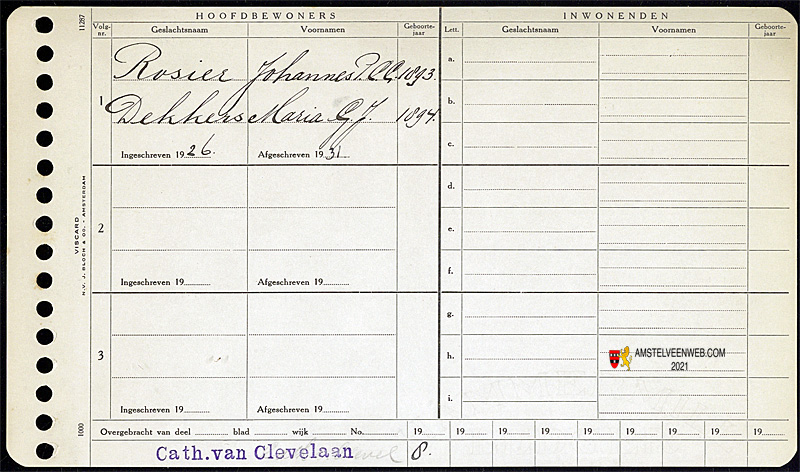 11287
HOOFDBEWONERS
INWONENDEN
Volg-nr.
Geslachtsnaam
Voornamen
Geboorte-jaar
Lett.
Geslachtsnaam
Voornamen
Geboorte-jaar
1
Rosier Johannes P.C.C. 1893.
Dekkers Maria G.J. 1894.
Ingeschreven 1926.
Afgeschreven 1931
a.
b.
c.
VISCARD
N.V. J. BLOCH & CO. - AMSTERDAM
2
Ingeschreven 19
Afgeschreven 19
d.
e.
f.
3
Ingeschreven 19
Afgeschreven 19
g.
h.
i.
AMSTELVEENWEB.COM
2021
1000
Overgebracht van deel blad wijk No.
19 19 19 19 19 19 19 19 19
Cath.van Clevelaan
8.